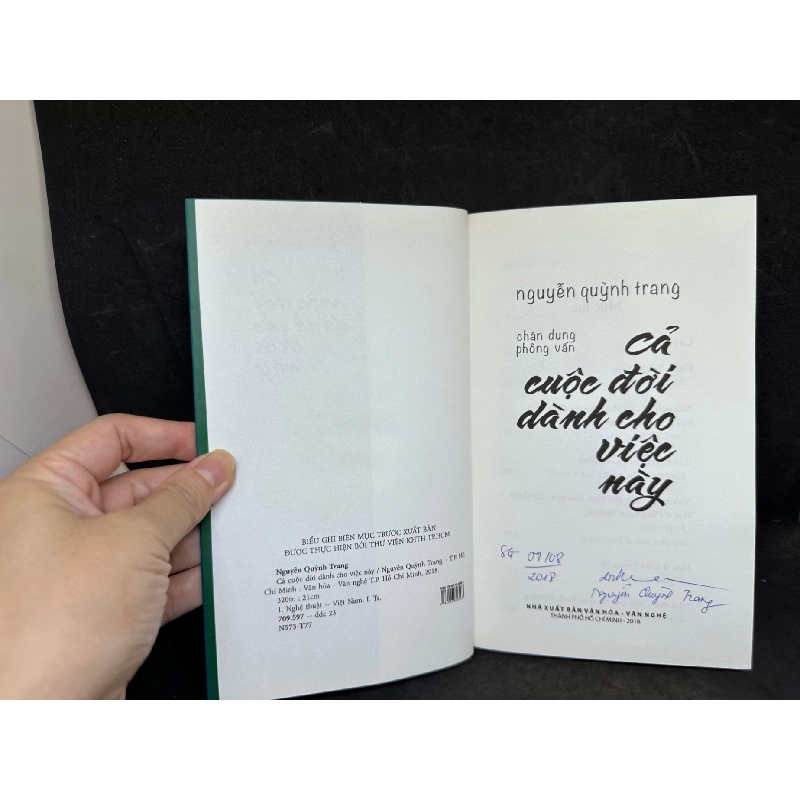 BIỂU GHI BIÊN MỤC TRƯỚC XUẤT BẢN
ĐƯỢC THỰC HIỆN BỞI THƯ VIỆN KHTH TP.HCM
Nguyễn Quỳnh Trang
Cả cuộc đời dành cho việc này / Nguyễn Quỳnh Trang. - T.P. Hồ
Chí Minh : Văn hóa - Văn nghệ T.P. Hồ Chí Minh, 2018.
320tr. ; 21cm
1. Nghệ thuật -- Việt Nam. I. Ts.
709.597 -- ddc 23
N573-T77
nguyễn quỳnh trang
chân dung
phỏng vấn
cả
cuộc đời
dành cho
việc
này
SG 07/08
2018
Nguyễn Quỳnh Trang
NHÀ XUẤT BẢN VĂN HÓA - VĂN NGHỆ
THÀNH PHỐ HỒ CHÍ MINH - 2018